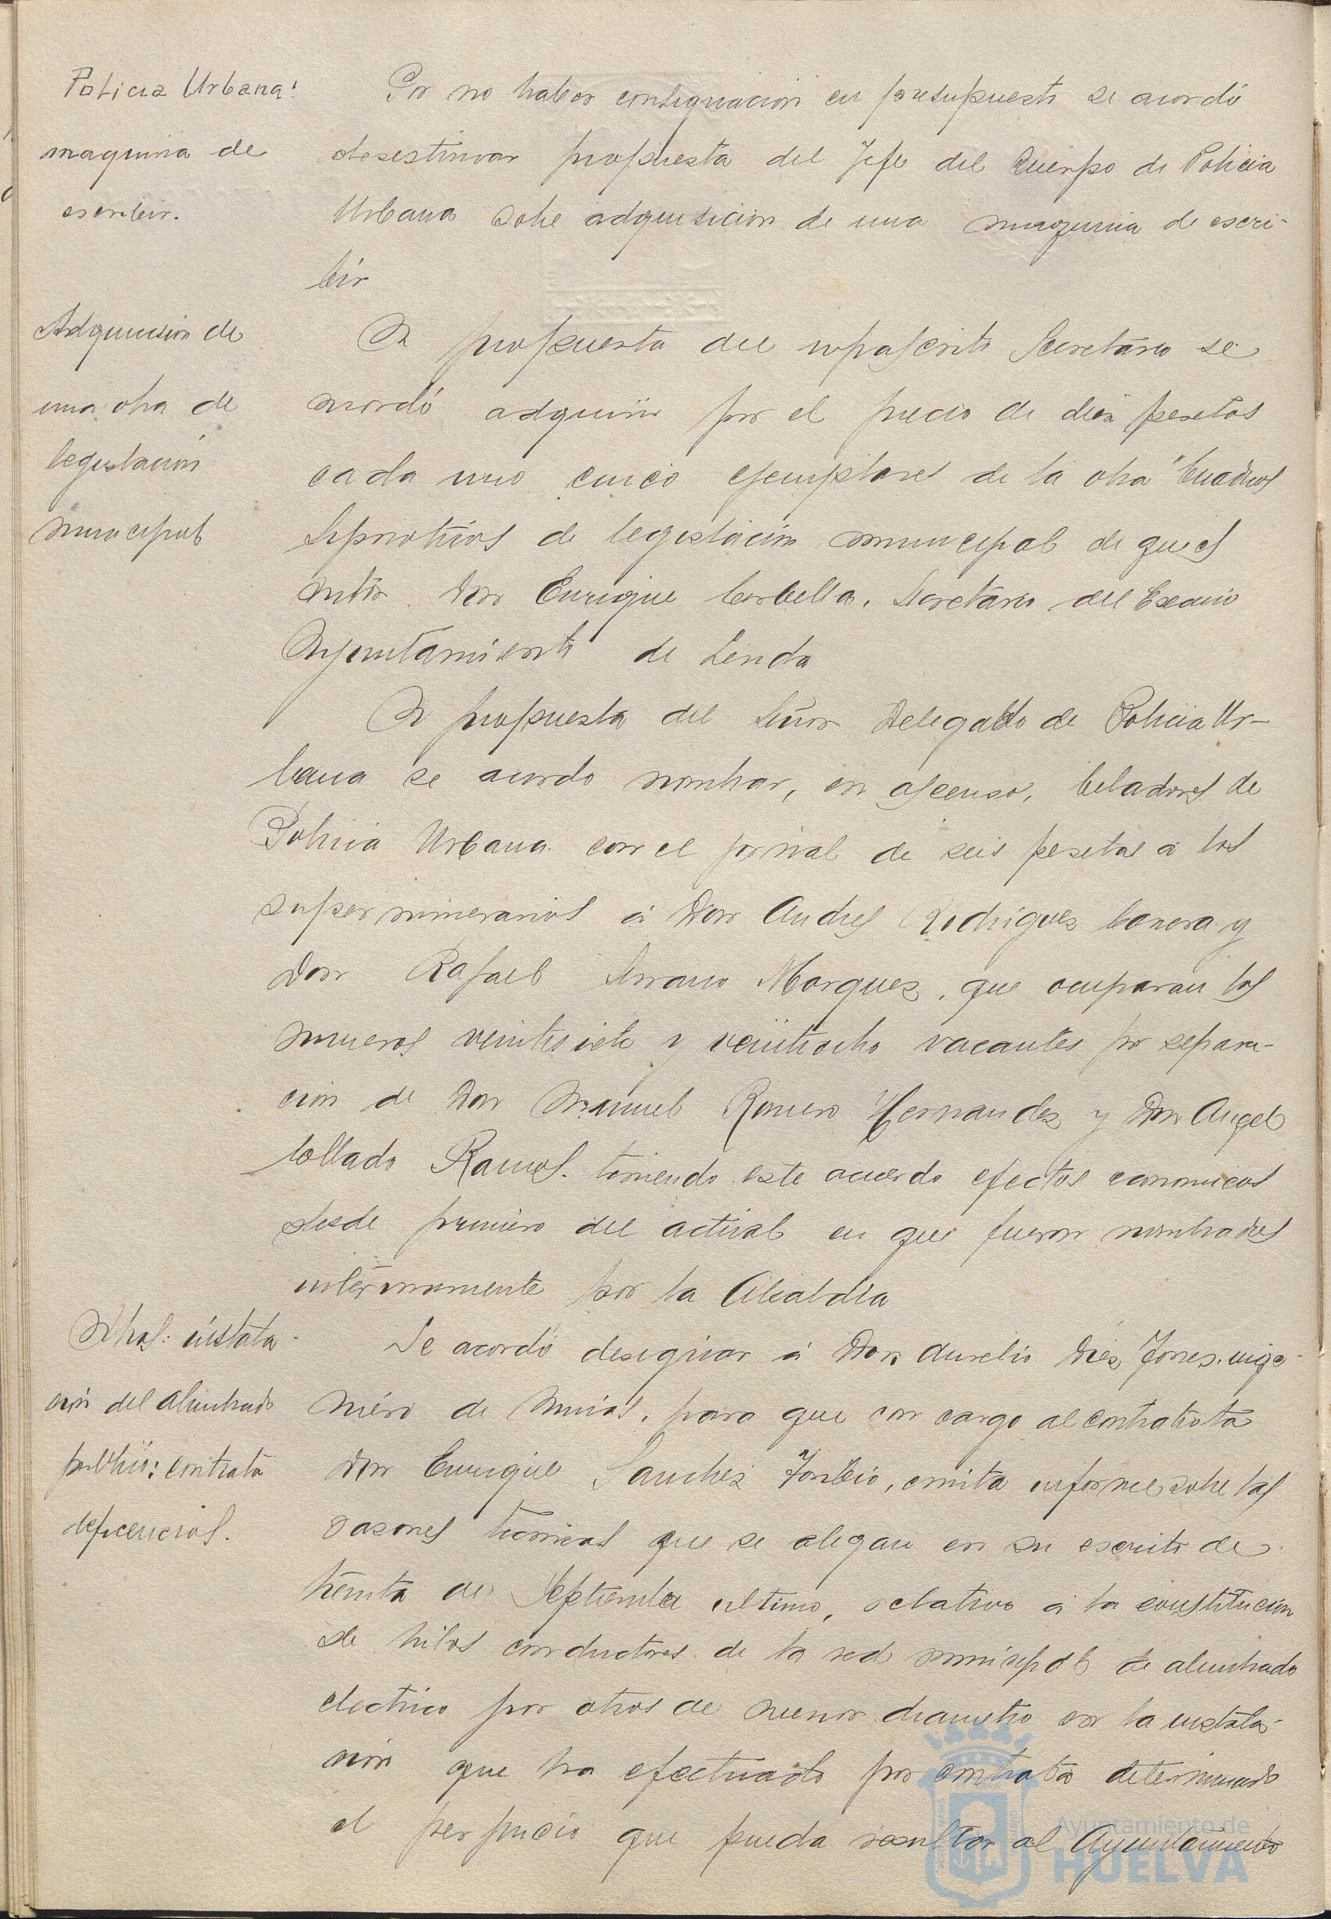 Policia Urbana:
maquina de
escribir.
Por no haber consignacion en presupuesto se acordó
desestimar propuesta del Jefe del Cuerpo de Policia
Urbana sobre adquisicion de una maquina de escri-
bir
Adquisicion de
una obra de
legislacion
municipal
A propuesta del infrascrito Secretario se
acordó adquirir por el precio de diez pesetas
cada uno cinco ejemplares de la obra "Cuadros
Sipnoticos de legislacion municipal de que es
autor Don Enrique Corbella, Secretario del Excmo
Ayuntamiento de Lerida
A propuesta del Señor Delegado de Policia Ur-
bana se acordo nombrar, en ascenso, Celadores de
Policia Urbana con el jornal de seis pesetas a los
supernumerarios á Don Andres Rodriguez y
Don Rafael Serrano Marquez, que ocuparan los
numeros veintisiete y veintiocho vacantes por separa-
cion de Don Manuel Romero Hernandez y Don Angel
Collado Ramos. teniendo este acuerdo efectos economicos
desde primero del actual en que fueron nombrados
interinamente por la Alcaldia
Obras: instala-
cion del alumbrado
publico: contrata
deficiencias.
Se acordó designar á Don Aurelio Diez Torres, inge-
niero de Minas, para que con cargo al contratista
Don Enrique Sanchez Toribio, emita informe sobre las
razones tecnicas que se alegan en su escrito de
treinta de Septiembre ultimo, relativo á la constitucion
de hilos conductores de la red municipal de alumbrado
electrico por otros de menor diametro en la instala-
cion que ha efectuado por contrata determinando
el perjuicio que pueda resultar al Ayuntamiento
Ayuntamiento de
HUELVA